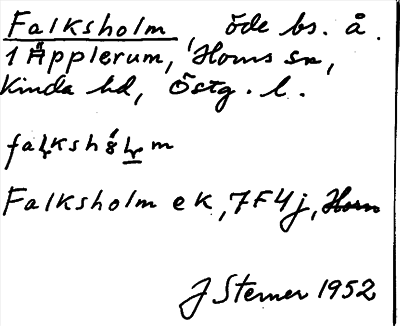 Falksholm, öde bs. å.
1 Äpplerum, Horns sn,
Kinda hd, Östg. l.
Falksholm ek, 7F4j, Horn
J Sterner 1952